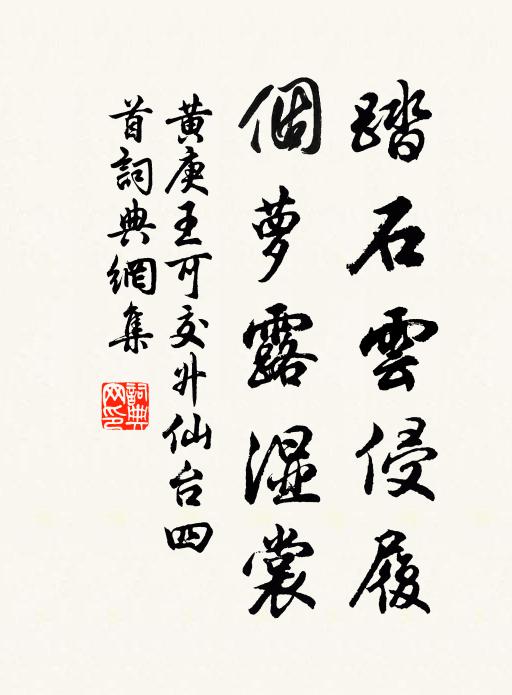 踏石雲侵履
個夢露湿裳
黃庚王可交升仙台四
首詞典網集
詞典
网印